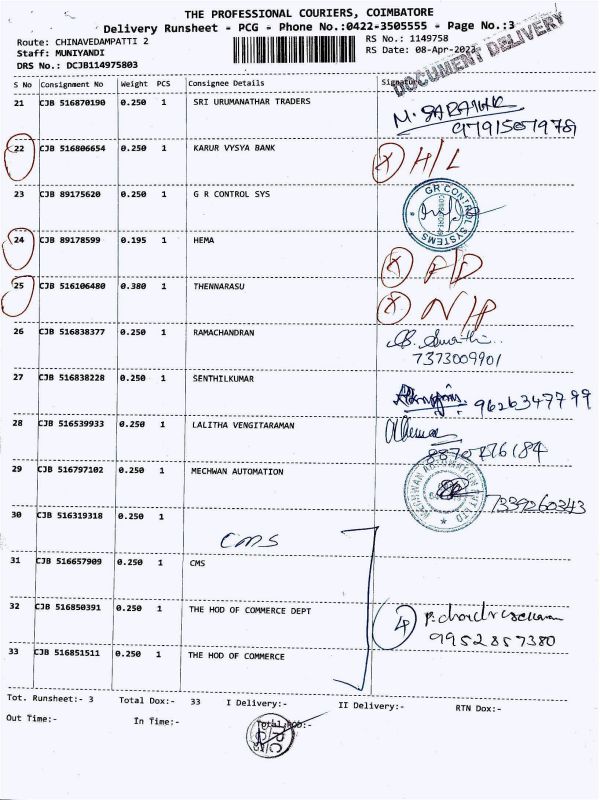 THE PROFESSIONAL COURIERS, COIMBATORE
Delivery Runsheet - PCG - Phone No.:0422-3505555 - Page No.:3
Route: CHINAVEDAMPATTI 2
Staff: MUNIYANDI
DRS No.: DCJB114975803
RS No.: 1149758
RS Date: 08-Apr-2023
DOCUMENT DELIVERY
S No Consignment No Weight PCS Consignee Details Signature
21 CJB 516870190 0.250 1 SRI URUMANATHAR TRADERS
9791507978
22 CJB 516806654 0.250 1 KARUR VYSYA BANK X H/L
23 CJB 89175620 0.250 1 G R CONTROL SYS GR CONTROL SYSTEMS
24 CJB 89178599 0.195 1 HEMA X
25 CJB 516106480 0.380 1 THENNARASU X N/P
26 CJB 516838377 0.250 1 RAMACHANDRAN
7373009901
27 CJB 516838228 0.250 1 SENTHILKUMAR 9626347799
28 CJB 516539933 0.250 1 LALITHA VENGITARAMAN
29 CJB 516797102 0.250 1 MECHWAN AUTOMATION 7339260343
30 CJB 516319318 0.250 1
CMS
31 CJB 516657909 0.250 1 CMS
32 CJB 516850391 0.250 1 THE HOD OF COMMERCE DEPT 4
9952857380
33 CJB 516851511 0.250 1 THE HOD OF COMMERCE
Tot. Runsheet:- 3 Total Dox:- 33 I Delivery:- II Delivery:- RTN Dox:-
Out Time:- In Time:- Total POD:-